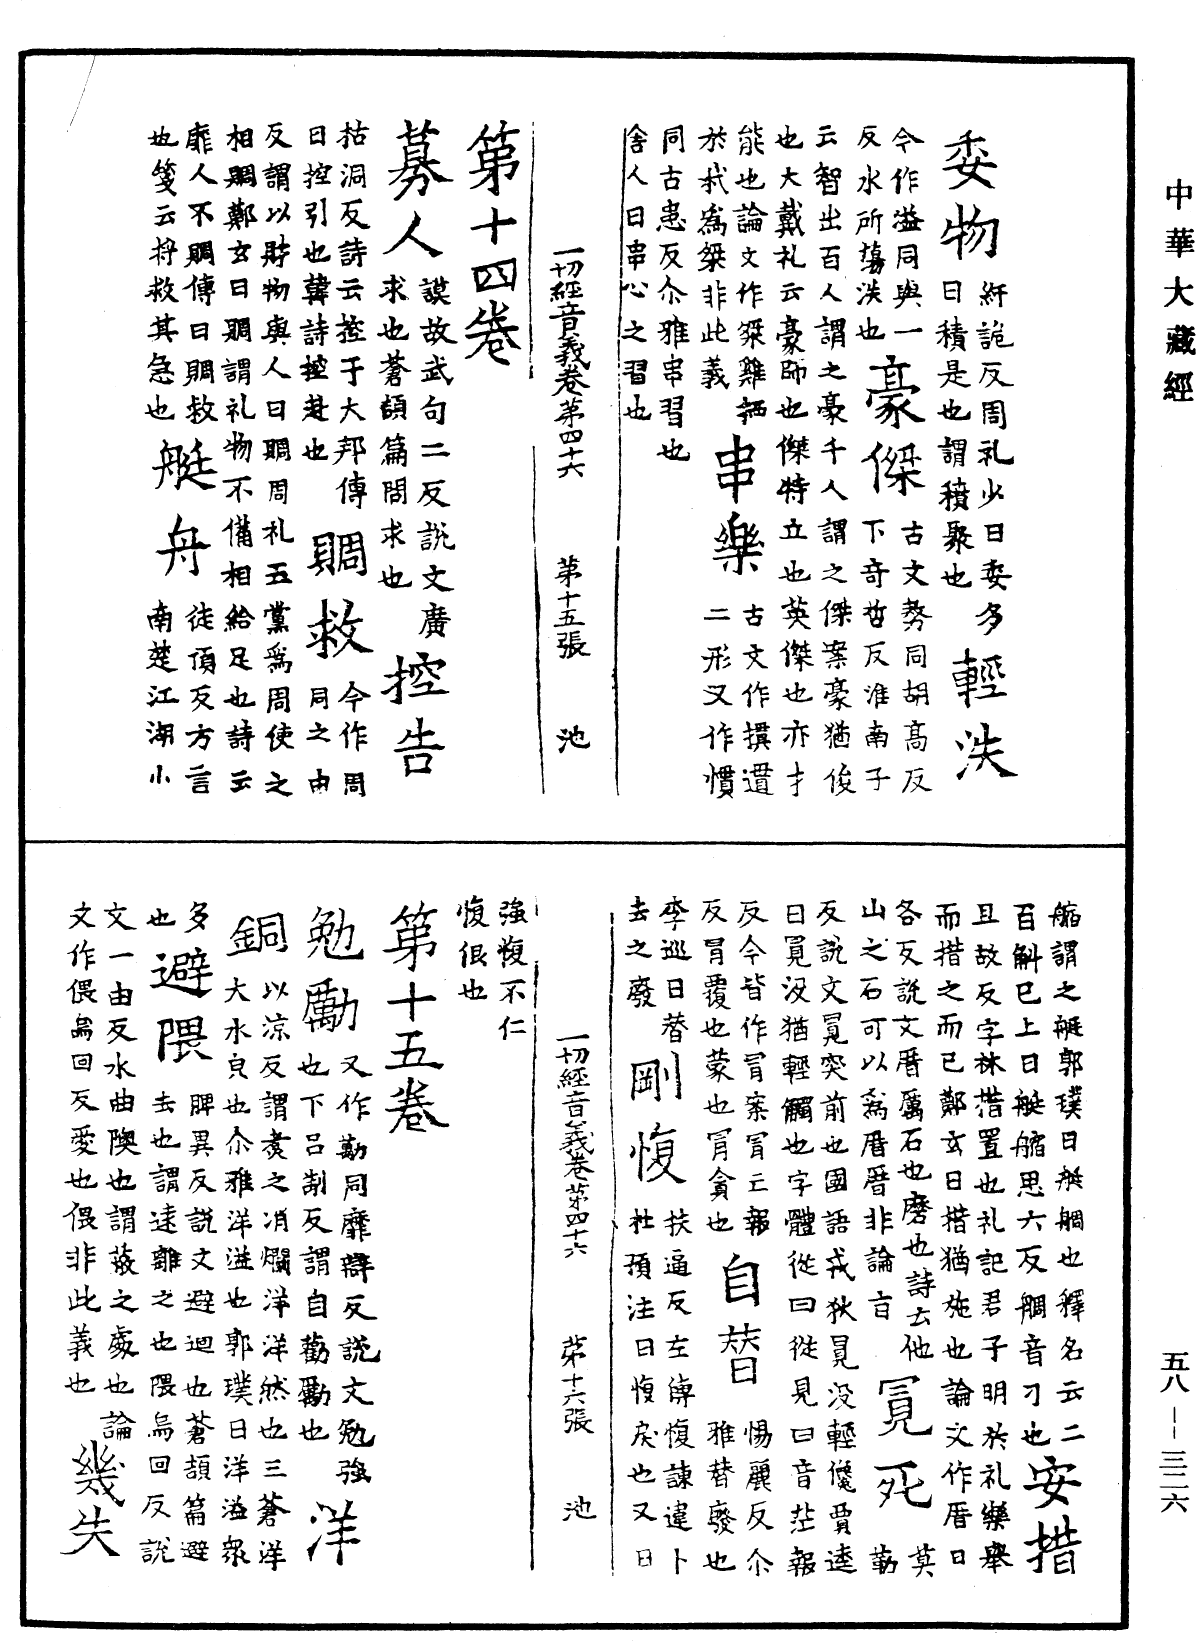 中華大藏經
委物 紆詭反周礼少曰委多
曰積是也謂積聚也 輕泆
今作溢同與一
反水所蕩泆也 豪傑 古文勢同胡高反
下奇哲反淮南子
云智出百人謂之豪千人謂之傑案豪猶俊
也大戴礼云豪帥也傑特立也英傑也亦才
能也論文作桀雞栖
於杙爲桀非此義 串樂 古文作摜遺
二形又作慣
同古患反尒雅串習也
舍人曰串心之習也
一切經音義卷第四十六 第十五張 池
第十四卷
募人 謨故武句二反說文廣
求也蒼頡篇問求也 控告
枯洞反詩云控于大邦傳
曰控引也韓詩控赴也 賙救 今作周
同之由
反謂以財物與人曰賙周礼五黨爲周使之
相賙鄭玄曰賙謂礼物不備相給足也詩云
靡人不賙傳曰賙救
也箋云將救其急也 艇舟 徒頂反方言
南楚江湖小
艒謂之艇郭璞曰艇舸也釋名云二
百斛已上曰艇艒思六反舸音刀也 安措
且故反字林措置也礼記君子明於礼樂舉
而措之而已鄭玄曰措猶施也論文作厝曰
各反說文厝厲石也磨也詩云他
山之石可以爲厝厝非論旨 冒死 莫
勒
反說文冒突前也國語戎狄冒没輕儳賈逵
曰冒没猶輕觸也字體從曰從見曰音茫報
反今皆作冒案冒亡報
反冐覆也蒙也冐貪也 自替 惕麗反尒
雅替廢也
李巡曰替
去之廢 剛愎 扶逼反左傳愎諫違卜
杜預注曰愎戾也又曰
強愎不仁
愎佷也
一切經音義卷第四十六 第十六張 池
第十五卷
勉勵 又作勱同靡辯反說文勉強
也下呂制反謂自勸勵也 洋
銅 以凉反謂煑之消爛洋洋然也三蒼洋
大水皃也尒雅洋溢也郭璞曰洋溢衆
多
也 避隈 脾異反說文避迴也蒼頡篇避
去也謂遠離之也隈烏回反說
文一由反水曲隩也謂蔽之處也論
文作偎烏回反愛也偎非此義也 幾失
五八——三二六